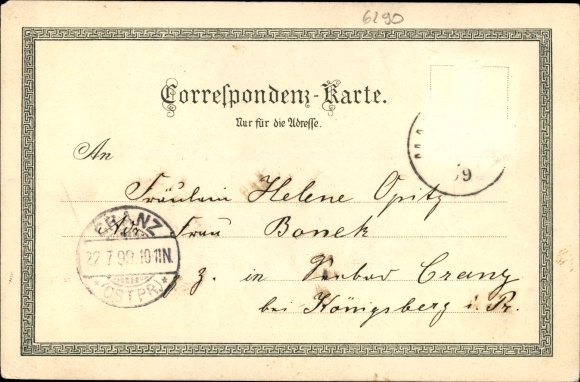 6290
Correspondenz-Karte.
Nur für die Adresse.
An
Fräulein Helene Opitz
Adr. Frau Bonek
z. in Seebad Cranz
bei Königsberg i. Pr.
CRANZ
22.7.99.10-11N.
*(OSTPR.)*
99